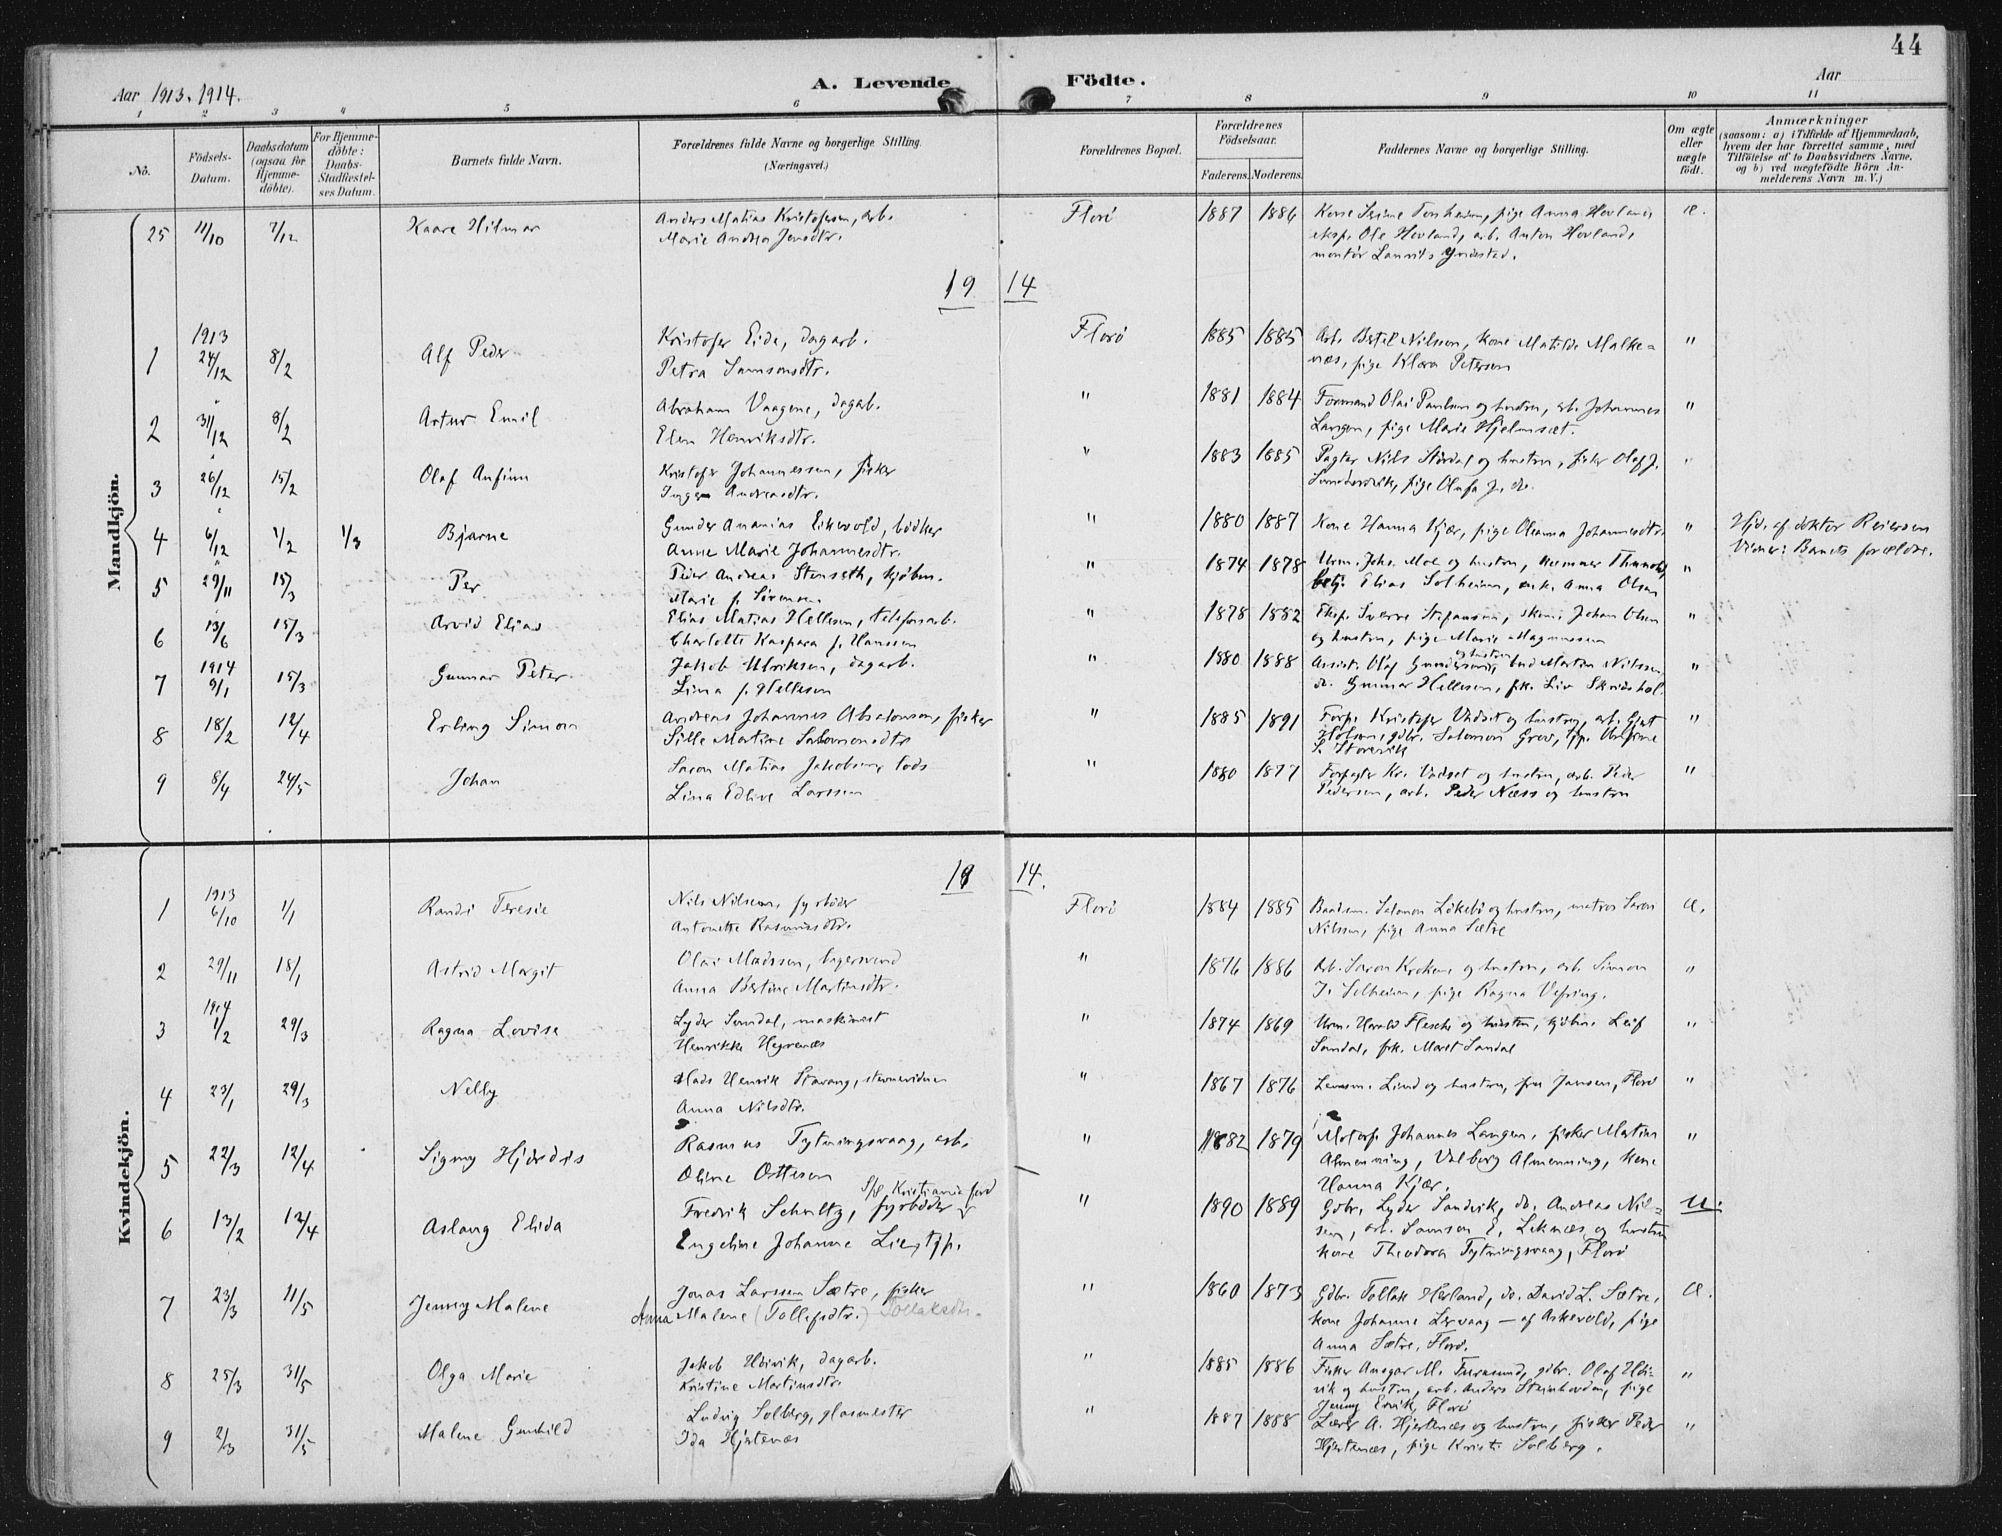 44
Aar 1913. 1914.
A. Levende Födte.
Aar
1 2 3 4 5 6 7 8 9 10 11
No.
Födsels-Datum.
Daabsdatum (ogsaa for Hjemme-döbte).
For Hjemme-döbte: Daabs-Stadfæstel-ses Datum.
Barnets fulde Navn.
Forældrenes fulde Navne og borgerlige Stilling. (Næringsvei.)
Forældrenes Bopæl.
Forældrenes Födselsaar.
Faderens. Moderens.
Faddernes Navne og borgerlige Stilling.
Om ægte eller uægte födt.
Anmærkninger
(saasom: a) i Tilfælde af Hjemmedaab, hvem der har forrettet samme, med Tilföielse af to Daabsvidners Navne, og b) ved uægtefödte Börn An-melderens Navn m. V.)
Mandkjön.
25 11/10 7/12 Kaare Hilmar Anders Matias Kristofersen, arb. Florø 1887 1886 Kone Torsheim, pige Anna Hovland, æ.
Marie Andrea Jensdtr. eksp. Ole Hovland, arb. Anton Hovland,
montør Lauvits
19 14
1 1913 24/12 8/2 Alf Peder Kristofer Eide, dagarb. Florø 1885 1885 Arb. Bertel Nilsson, kone Matilde Malke- "
Petra Samsonsdtr. næs, pige Klara Petersen
2 31/12 8/2 Artur Emil Abraham Vaagene, dagarb. " 1881 1884 Formand Olai Paulsen og hustru, arb. Johannes "
Elen Henriksdtr. Langen, pige Marie Hjelmset.
3 26/12 15/2 Olaf Anfinn Kristofer Johannessen, fisker " 1883 1885 Pagter Nils og hustru, fisker Olaf J. "
Inger Andreasdtr. pige Olufa J. do.
4 6/12 1/2 1/3 Bjarne Gunder Ananias Eikevold, bødker " 1880 1887 Kone Hanna Kjær, pige Oleanna Johannesdtr. " Hjd. af doktor Reiersen
Anne Marie Johannesdtr. Vidner: Barnets forældre.
5 29/11 15/3 Per Peder Andreas Stenseth, kjøbm. " 1874 1878 Urm. Johs. Moe og hustru, "
Marie f. Sørensen Elias Solheim, enk. Anna Olsen
6 13/6 15/3 Arvid Elias Elias Matias Hellesen, telefonarb. " 1878 1882 Eksp. Sverre Stefansen, skom. Johan Olsen "
Charlotte Kaspara f. Hanssen og hustru, pige Marie Magnussen
7 1914 9/1 15/3 Gunnar Peter Jakob Ulriksen, dagarb. " 1880 1888 Assist. Olaf Gundersen og hustru, bud Martin Nilssen, "
Lina f. Hellesen do. Gunnar Hellesen, frk. Liv
8 18/2 12/4 Erling Simon Andreas Johannes Absalonsen, fisker " 1885 1891 Forp. Kristofer Vadset og hustru, arb. Gert "
Sille Martine Salomonsdtr. Holsen, gdbr. Salomon Grov, tjp.
S. Storevik
9 8/4 24/5 Johan Saron Matias Jakobsen, lods " 1880 1877 Forpagter Kr. Vadset og hustru, arb. Peder "
Lina Edine Larssen Pedersen, arb. Peder Næss og hustru
Kvindekjön.
19 14.
1 1913 6/10 1/1 Randi Teresie Nils Nilssen, fyrbøder Florø 1884 1885 Baadsm. Salamon Løkebø og hustru, matros Saron æ.
Antonette Rasmusdtr. Nilssen, pige Anna Sætre
2 29/11 18/1 Astrid Margit Olai Madssen, bagersvend " 1876 1886 Arb. Saron Kroken og hustru, arb. Simon "
Anna Bertine Martinsdtr. J. Solheim, pige Ragna Vefring.
3 1914 1/2 29/3 Ragna Lovise Lyder Sandal, maskinist " 1874 1869 Urm. Harald Flesche og hustru, kjøbm. Leif "
Henrikke Hegrenæs Sandal, frk. Marit Sandal
4 23/1 29/3 Nelly Mads Henrik Stavang, stevnevidne " 1867 1876 Lensm. Lind og hustru, fru Jansen, Florø "
Anna Nilsdtr.
5 22/3 12/4 Signy Hjørdis Rasmus Tytningsvaag, arb. " 1882 1879 Motorf. Johannes Langen, fisker Martin "
Oline Ottesen Almenning, Valborg Almenning, kone
Hanna Kjær.
6 13/2 12/4 Aslaug Elida Fredrik Schultz, fyrbøder S/S Kristianiafjord " 1890 1889 Gdbr. Lyder Sandvik, do. Andreas Nil- U.
Engeline Johanne Lie, tjp. sen, arb. Samson E. Leknæs og hustru
kone Theodora Tytningsvaag, Florø
7 23/3 11/5 Jenny Malene Jonas Larssen Sætre, fisker " 1860 1873 Gdbr. Tollak Herland, do. David L. Sætre, æ.
Anna Malene (Tollefsdtr.) Tollaksdtr. kone Johanne Lervaag – af Askevold, pige
Anna Sætre, Florø.
8 25/3 31/5 Olga Marie Jakob Høivik, dagarb. " 1885 1886 Fisker Ansgar M. Furesund, gdbr. Olaf Høi- "
Kristine Martinsdtr. vik og hustru, arb. Anders Steinhovden, pige
Jenny Florø
9 2/3 31/5 Malene Gunhild Ludvig Solberg, glasmester " 1887 1888 Lærer A. Hjertenæs og hustru, fisker Peder "
Ida Hjertenæs Hjertenæs, pige Krist. Solberg.